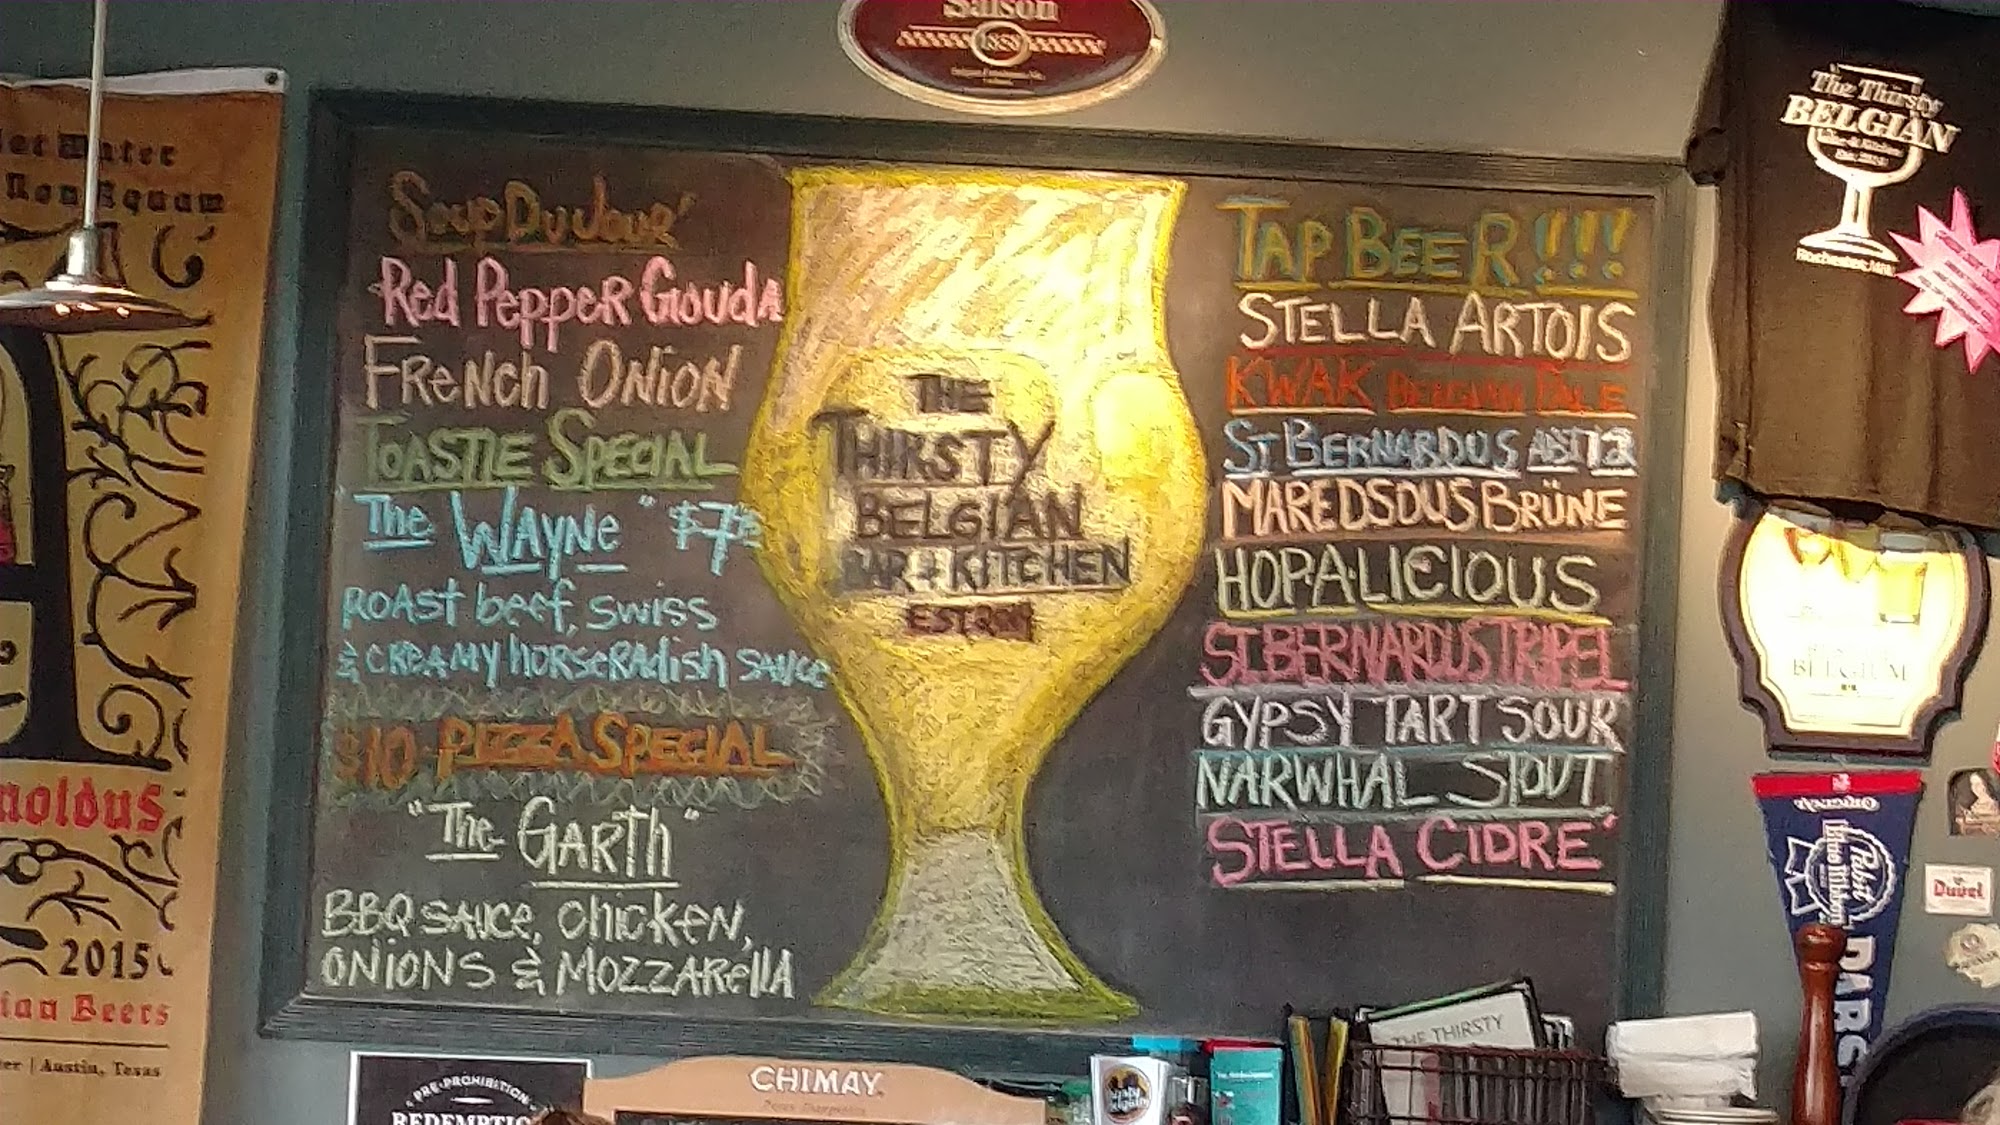 Saison
1858
Hot Water
Non Equam
noldus
2015
ian Beers
Austin, Texas
Soup Du Jour
Red Pepper Gouda
French Onion
Toastie Special
The Wayne" $7
Roast beef, swiss
& creamy horseradish sauce
$10 Pizza Special
"The Garth"
BBQ sauce, chicken,
onions & mozzarella
THE
THIRSTY
BELGIAN
BAR + KITCHEN
EST.
TAP BEER!!!
STELLA ARTOIS
KWAK BELGIAN PALE
ST BERNARDUS ABT 12
MAREDSOUS BRÜNE
HOPALICIOUS
ST. BERNARDUS TRIPEL
GYPSY TART SOUR
NARWHAL STOUT
STELLA CIDRE'
The Thirsty
BELGIAN
Rochester, MN
BELGIUM
ORIGINAL
Pabst
Blue Ribbon
PABS
Duvel
PRE-PROHIBITION
REDEMPTIO
CHIMAY
THE THIRSTY